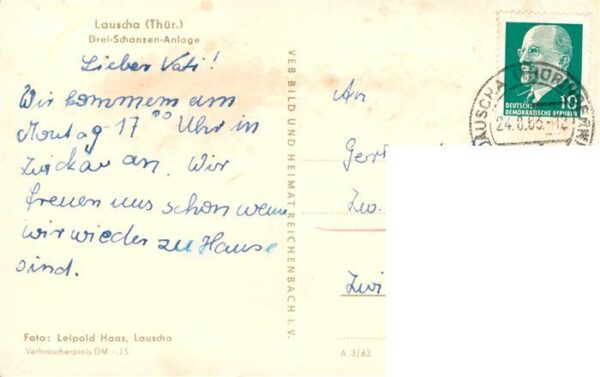 Lauscha (Thür.)
Drei-Schanzen-Anlage
Lieber Vati!
Wir kommem am
Montag 17⁰⁰ Uhr in
Zwickau an. Wir
freuen uns schon wenn
wir wieder zu Hause
sind.
Foto: Leipold Haas, Lauscha
Verbraucherpreis DM -,15
VEB BILD UND HEIMAT REICHENBACH I. V.
A 3/63
An
Zw.
Zwi
10
DEUTSCHE
DEMOKRATISCHE REPUBLIK
LAUSCHA (THÜR